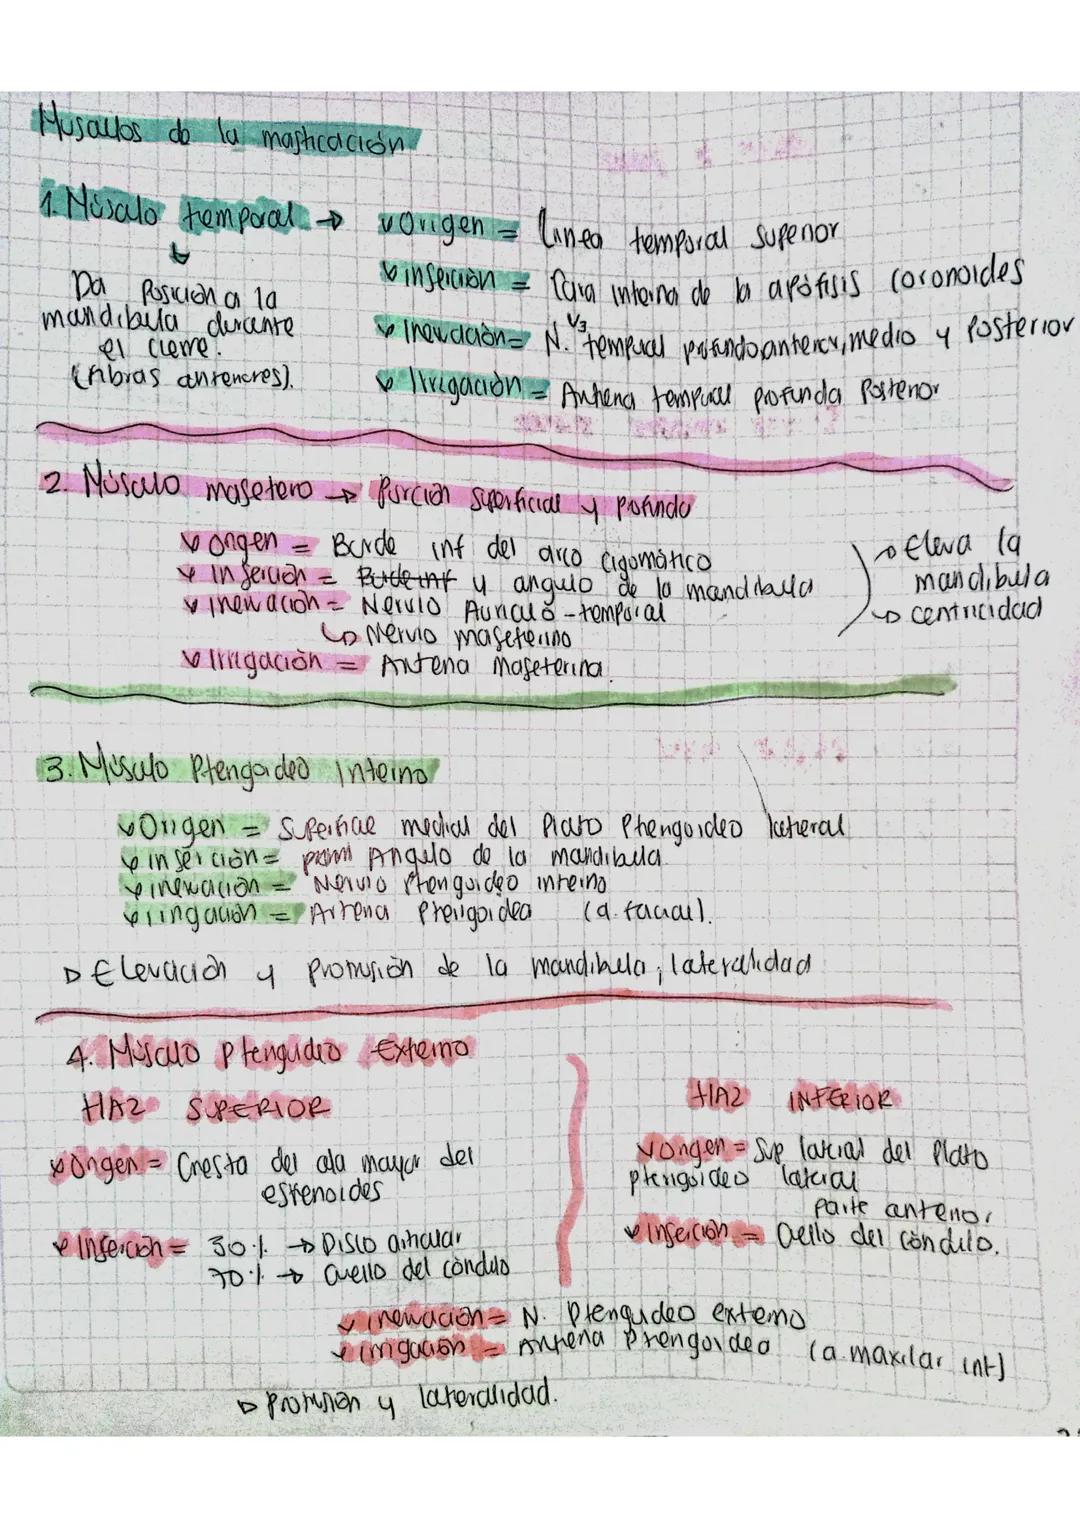 Músculos de la masticación
1. Músculo temporal → ✓ Origen = Linea temporal superior
Da Posición a la
mandibula durante
el cierre.
(fibras anteriores).
✓ inserción = Cara interna de la apófisis coronoides
✓ Inervación = N. V3 temporal profundo anterior, medio y Posterior
✓ Irrigación = Arteria temporal profunda Posterior
2. Músculo masetero → Porción superficial y Profunda
✓ Origen = Borde inf del arco cigomático
✓ Inserción = Borde inf y angulo de la mandibula
✓ Inervación = Nervio Auriculo-temporal
↳ Nervio maseterino
✓ Irrigación = Arteria Maseterina.
→ Eleva la
mandibula
→ centricidad
3. Músculo Pterigoideo Interno
✓ Origen = Superficie medial del Plato Pterigoideo lateral
✓ inserción = Angulo de la mandibula
✓ inervación = Nervio Pterigoideo interno
✓ irrigación = Arteria Pterigoidea (a. facial).
▷ Elevación y Protrusión de la mandibula, lateralidad
4. Músculo Pterigoideo Externo
HAZ SUPERIOR
✓ Origen = Cresta del ala mayor del
esfenoides
✓ Inserción = 30% → Disco articular
70% → Cuello del cóndulo
HAZ INFERIOR
✓ Origen = Sup lateral del Plato
pterigoideo lateral
Parte anterior
✓ Inserción = Cuello del cóndulo.
✓ inervación = N. Pterigoideo externo
✓ irrigación = Arteria Pterigoidea (a. maxilar int)
▷ Protrusión y lateralidad.